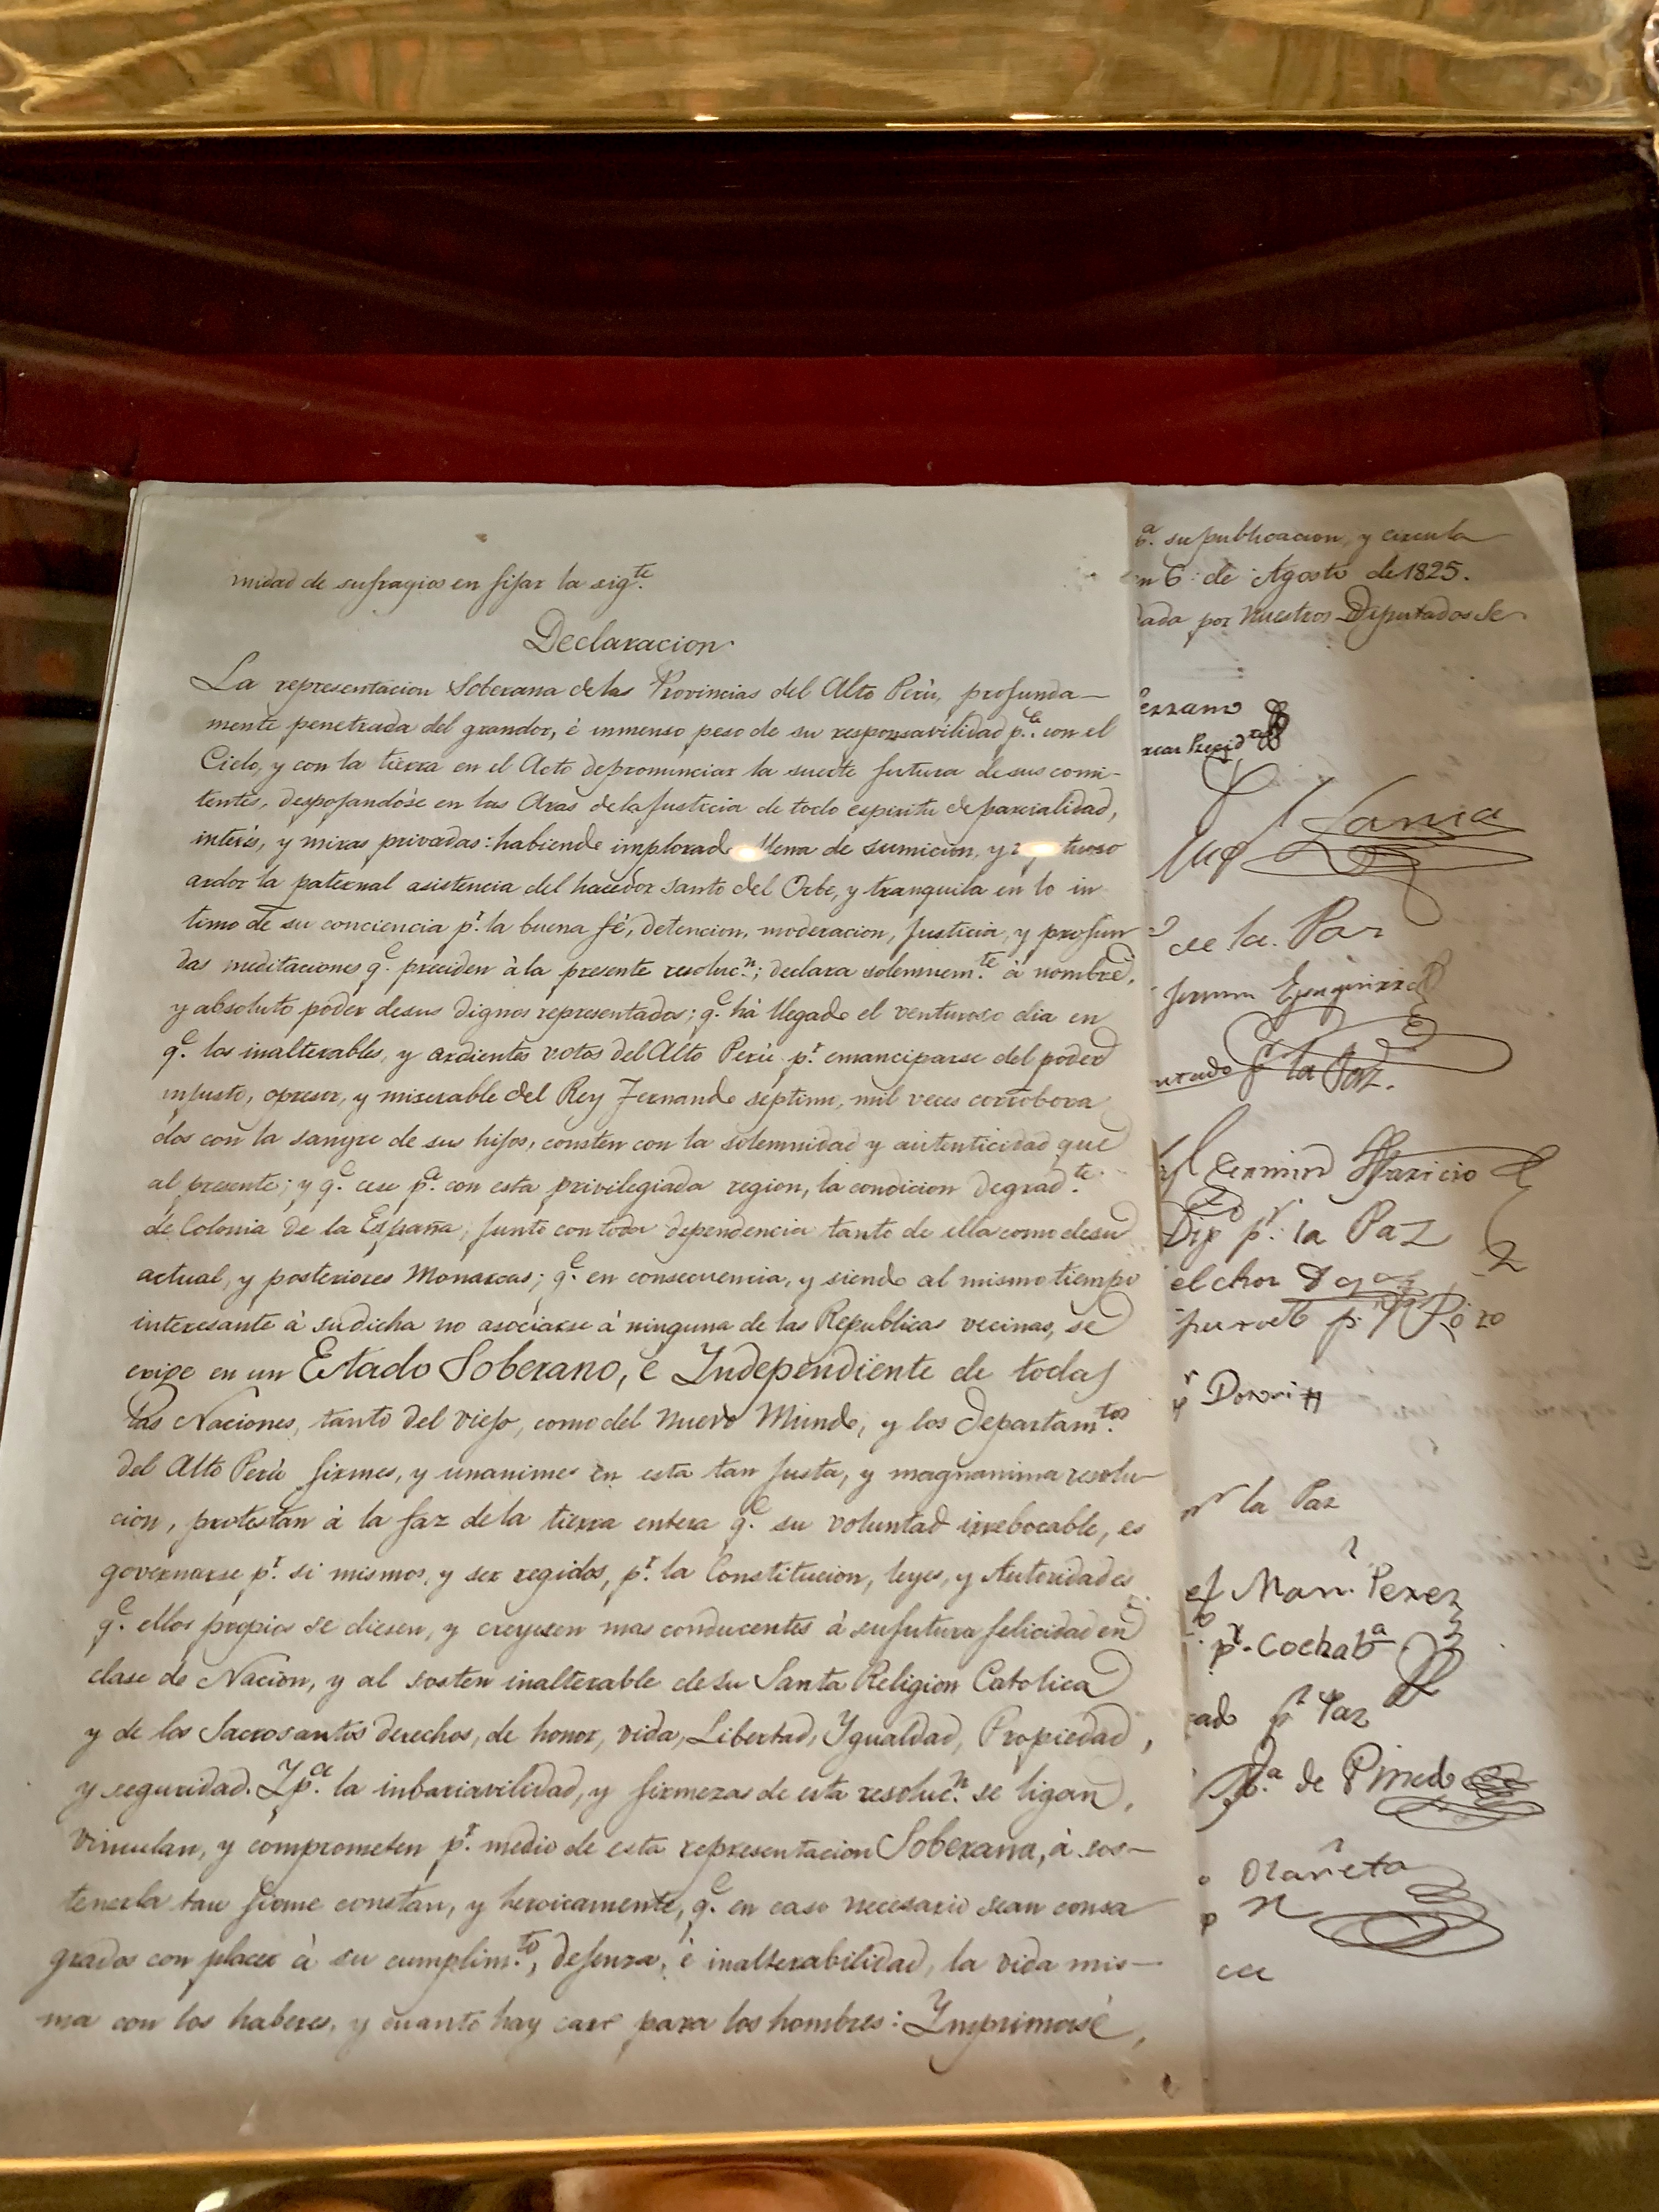 nidad de sufragios en fijar la sig.te
Declaracion
La representacion Soberana de las Provincias del Alto Perú, profunda-
mente penetrada del grandor, é inmenso peso de su responsavilidad p.a con el
Cielo, y con la tierra en el Acto de pronunciar la suerte futura de sus comi-
tentes, despojandóse en las Aras de la Justicia de todo espiritu de parcialidad,
interés, y miras privadas: habiendo implorado llena de sumicion, y
ardor la paternal asistencia del hacedor santo del Orbe, y tranquila en lo in
timo de su conciencia p.r la buena fé, detencion, moderacion, Justicia, y profun
das meditaciones q.e preciden à la presente resoluc.n; declara solemnem.te à nombre,
y absoluto poder de sus dignos representados; q.e há llegado el venturoso dia en
q.e los inalterables, y ardientes votos del Alto Perú p.r emanciparse del poder
injusto, opresor, y miserable del Rey Fernando septimo, mil veces corrobora
dos con la sangre de sus hijos, consten con la solemnidad y autenticidad que
al presente; y q.e cese p.a con esta privilegiada region, la condicion degrad.te
de Colonia de la España, junto con toda dependencia tanto de ella como de su
actual, y posteriores Monarcas; q.e en consecuencia, y siendo al mismo tiempo
interesante à su dicha no asociarse à ninguna de las Republicas vecinas, se
erige en un Estado Soberano, é Independiente de todas
las Naciones, tanto del viejo, como del nuevo Mundo, y los departam.tos
del Alto Perú firmes, y unanimes en esta tan Justa, y magnanima resolu-
cion, protestan à la faz de la tierra entera q.e su voluntad irrebocable, es
governarse p.r si mismos, y ser regidos, p.r la Constitucion, leyes, y Autoridades
q.e ellos propios se diesen, y creyesen mas conducentes à su futura felicidad en
clase de Nacion, y al sosten inalterable de su Santa Religion Catolica
y de los Sacrosantos derechos, de honor, vida, Libertad, Ygualdad, Propiedad,
y seguridad. Y p.a la inbariavilidad, y firmeza de esta resoluc.n se ligan,
vinculan, y comprometen p.r medio de esta representacion Soberana, à sos-
tenerla tan firme constan, y heroicamente, q.e en caso necesario sean consa
grados con placer à su cumplim.to, defenza, é inalterabilidad, la vida mis-
ma con los haberes, y cuanto hay caro para los hombres: Ymprimasé,
a. su publicacion, y circula
n 6: de Agosto de 1825.
ada por nuestros Diputados Se
errano
Presid.te
Lanza
de la Paz
Eyzaguirre
utado p.r la Paz.
Fermin Aparicio
Dip p.r la Paz
elchor Daza
p.r Potosi
p.r la Paz
Man. Perez
p.r Cochab.a
ado p.r Paz
M.a de Pinedo
Olañeta